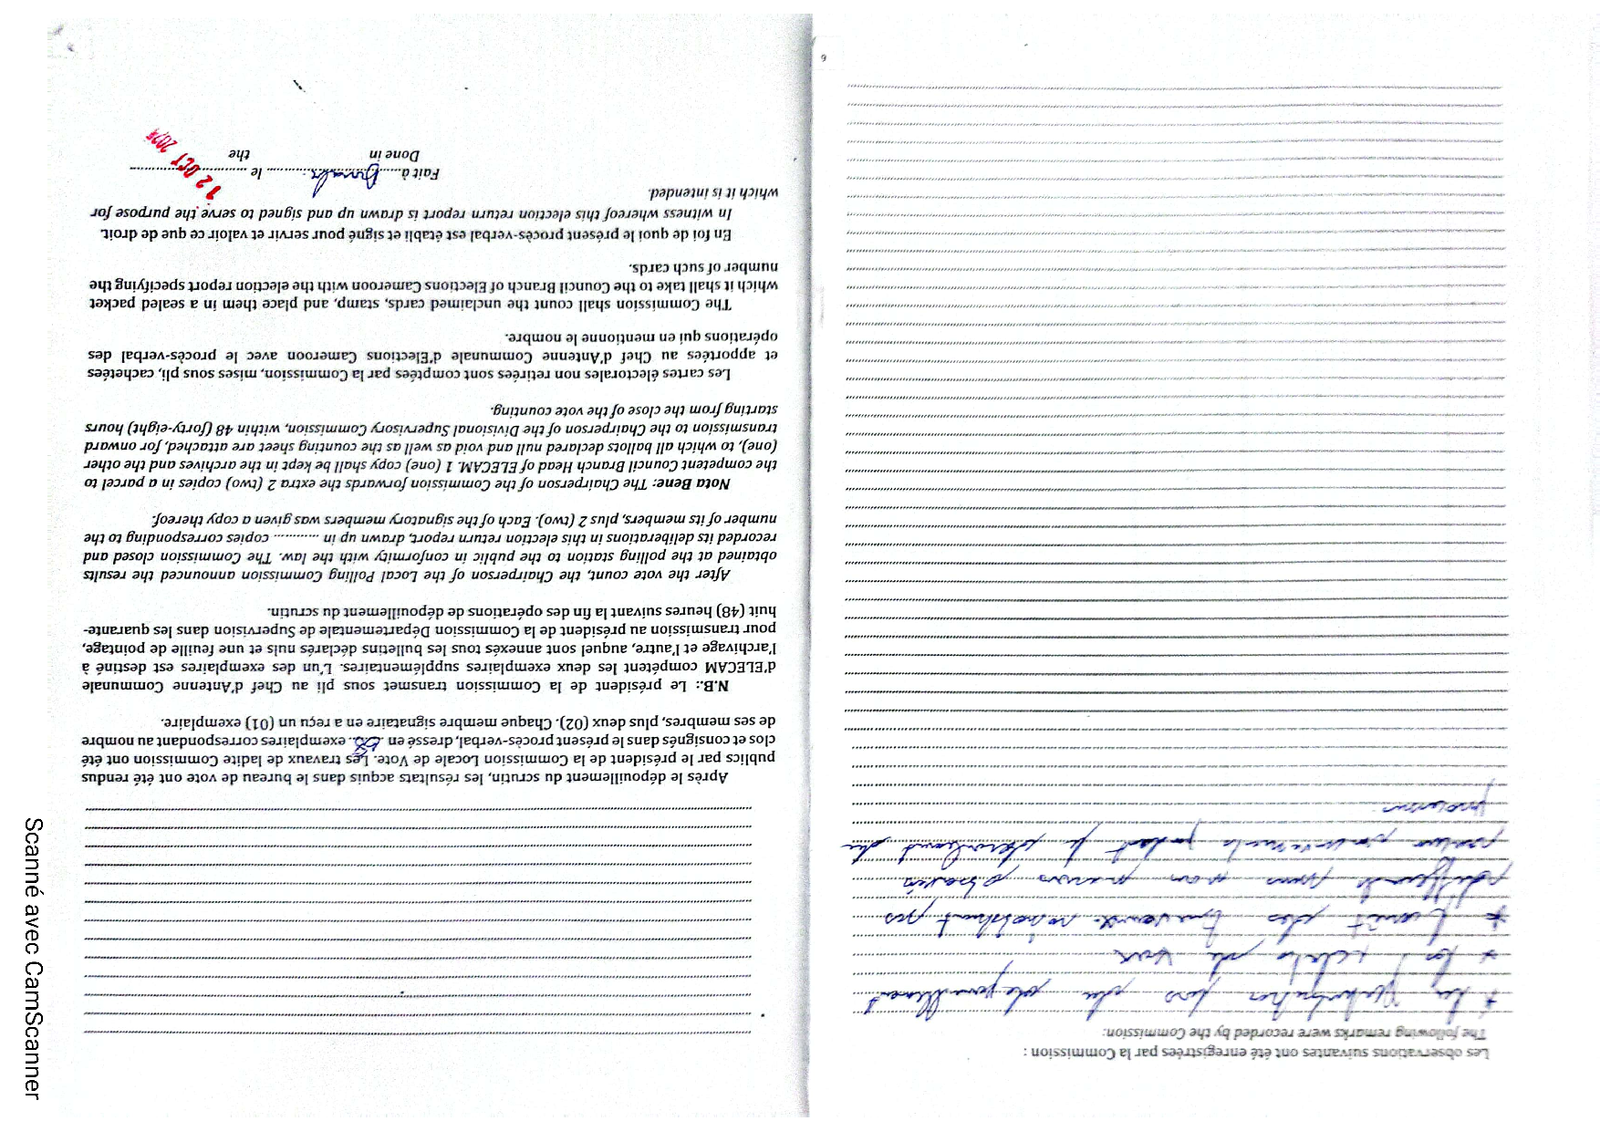 Les observations suivantes ont été enregistrées par la Commission :
The following remarks were recorded by the Commission:
* La perturbation lors du dépouillement
* Les de voix
* L'arrêt des travaux momentanément pas
pendant
processus
6
Après le dépouillement du scrutin, les résultats acquis dans le bureau de vote ont été rendus
publics par le président de la Commission Locale de Vote. Les travaux de ladite Commission ont été
clos et consignés dans le présent procès-verbal, dressé en ........ exemplaires correspondant au nombre
de ses membres, plus deux (02). Chaque membre signataire en a reçu un (01) exemplaire.
N.B.: Le président de la Commission transmet sous pli au Chef d'Antenne Communale
d'ELECAM compétent les deux exemplaires supplémentaires. L'un des exemplaires est destiné à
l'archivage et l'autre, auquel sont annexés tous les bulletins déclarés nuls et une feuille de pointage,
pour transmission au président de la Commission Départementale de Supervision dans les quarante-
huit (48) heures suivant la fin des opérations de dépouillement du scrutin.
After the vote count, the Chairperson of the Local Polling Commission announced the results
obtained at the polling station to the public in conformity with the law. The Commission closed and
recorded its deliberations in this election return report, drawn up in ........... copies corresponding to the
number of its members, plus 2 (two). Each of the signatory members was given a copy thereof.
Nota Bene: The Chairperson of the Commission forwards the extra 2 (two) copies in a parcel to
the competent Council Branch Head of ELECAM. 1 (one) copy shall be kept in the archives and the other
(one), to which all ballots declared null and void as well as the counting sheet are attached, for onward
transmission to the Chairperson of the Divisional Supervisory Commission, within 48 (forty-eight) hours
starting from the close of the vote counting.
Les cartes électorales non retirées sont comptées par la Commission, mises sous pli, cachetées
et apportées au Chef d'Antenne Communale d'Elections Cameroon avec le procès-verbal des
opérations qui en mentionne le nombre.
The Commission shall count the unclaimed cards, stamp, and place them in a sealed packet
which it shall take to the Council Branch of Elections Cameroon with the election report specifying the
number of such cards.
En foi de quoi le présent procès-verbal est établi et signé pour servir et valoir ce que de droit.
In witness whereof this election return report is drawn up and signed to serve the purpose for
which it is intended.
Fait à Douala le 12 OCT 2025
Done in the
Scanné avec CamScanner